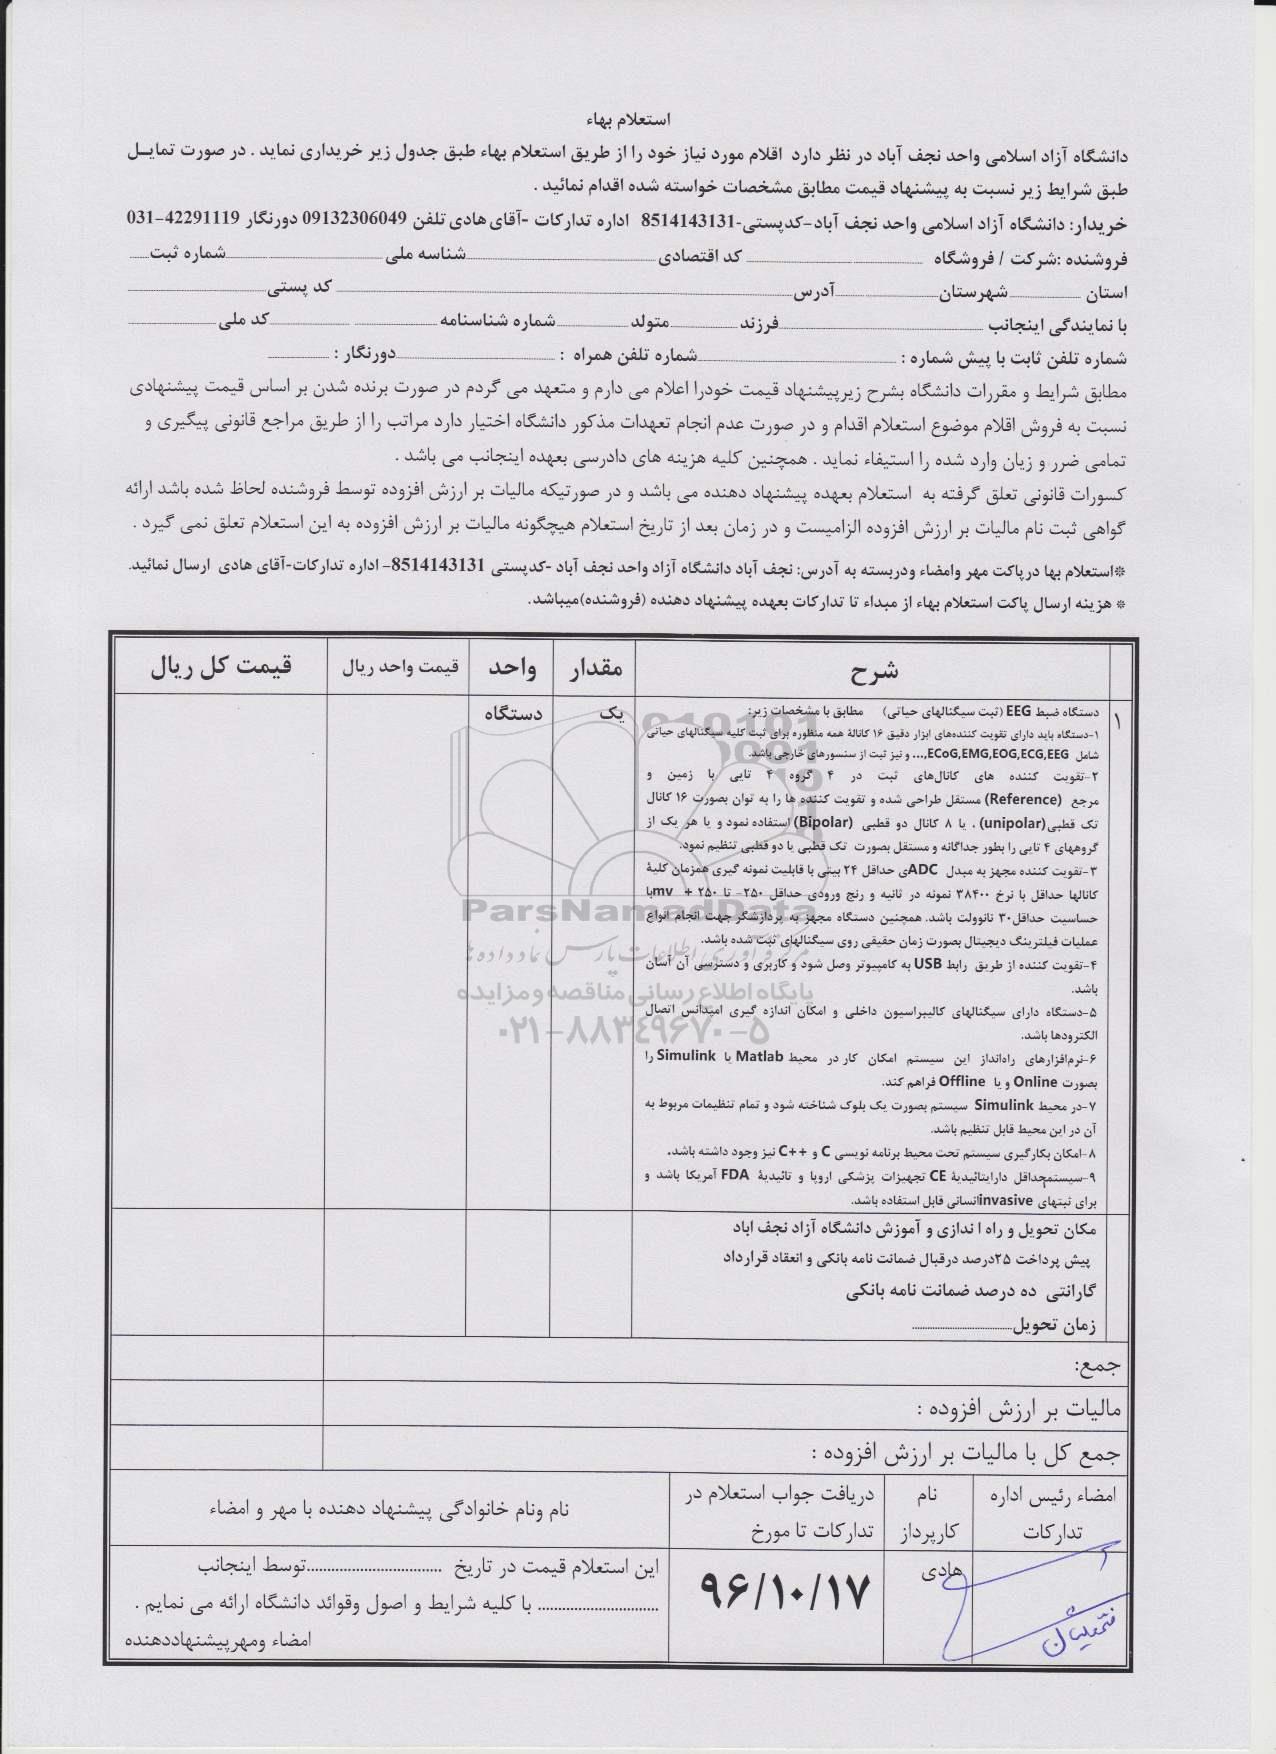 استعلام بهاء
دانشگاه آزاد اسلامی واحد نجف آباد در نظر دارد اقلام مورد نیاز خود را از طریق استعلام بهاء طبق جدول زیر خریداری نماید . در صورت تمایل
طبق شرایط زیر نسبت به پیشنهاد قیمت مطابق مشخصات خواسته شده اقدام نمائید .
خریدار: دانشگاه آزاد اسلامی واحد نجف آباد-کدپستی-8514143131 اداره تدارکات -آقای هادی تلفن 09132306049 دورنگار 42291119-031
فروشنده :شرکت / فروشگاه ........ کد اقتصادی ........ شناسه ملی ........ شماره ثبت ........
استان ........ شهرستان ........ آدرس ........ کد پستی ........
با نمایندگی اینجانب ........ فرزند ........ متولد ........ شماره شناسنامه ........ کد ملی ........
شماره تلفن ثابت با پیش شماره : ........ شماره تلفن همراه : ........ دورنگار : ........
مطابق شرایط و مقررات دانشگاه بشرح زیرپیشنهاد قیمت خودرا اعلام می دارم و متعهد می گردم در صورت برنده شدن بر اساس قیمت پیشنهادی
نسبت به فروش اقلام موضوع استعلام اقدام و در صورت عدم انجام تعهدات مذکور دانشگاه اختیار دارد مراتب را از طریق مراجع قانونی پیگیری و
تمامی ضرر و زیان وارد شده را استیفاء نماید . همچنین کلیه هزینه های دادرسی بعهده اینجانب می باشد .
کسورات قانونی تعلق گرفته به استعلام بعهده پیشنهاد دهنده می باشد و در صورتیکه مالیات بر ارزش افزوده توسط فروشنده لحاظ شده باشد ارائه
گواهی ثبت نام مالیات بر ارزش افزوده الزامیست و در زمان بعد از تاریخ استعلام هیچگونه مالیات بر ارزش افزوده به این استعلام تعلق نمی گیرد .
*استعلام بها درپاکت مهر وامضاء ودربسته به آدرس: نجف آباد دانشگاه آزاد واحد نجف آباد -کدپستی 8514143131- اداره تدارکات-آقای هادی ارسال نمائید.
* هزینه ارسال پاکت استعلام بهاء از مبداء تا تدارکات بعهده پیشنهاد دهنده (فروشنده)میباشد.
شرح مقدار واحد قیمت واحد ریال قیمت کل ریال
۱ دستگاه ضبط EEG (ثبت سیگنالهای حیاتی) مطابق با مشخصات زیر: یک دستگاه
۱-دستگاه باید دارای تقویت کننده‌های ابزار دقیق ۱۶ کاناله همه منظوره برای ثبت کلیه سیگنالهای حیاتی
شامل ECoG,EMG,EOG,ECG,EEG,... و نیز ثبت از سنسورهای خارجی باشد.
۲-تقویت کننده های کانال‌های ثبت در ۴ گروه ۴ تایی با زمین و
مرجع (Reference) مستقل طراحی شده و تقویت کننده ها را به توان بصورت ۱۶ کانال
تک قطبی(unipolar) ، یا ۸ کانال دو قطبی (Bipolar) استفاده نمود و یا هر یک از
گروههای ۴ تایی را بطور جداگانه و مستقل بصورت تک قطبی یا دو قطبی تنظیم نمود.
۳-تقویت کننده مجهز به مبدل ADCی حداقل ۲۴ بیتی با قابلیت نمونه گیری همزمان کلیهٔ
کانالها حداقل با نرخ ۳۸۴۰۰ نمونه در ثانیه و رنج ورودی حداقل ۲۵۰- تا ۲۵۰ + mvبا
حساسیت حداقل۳۰ نانوولت باشد. همچنین دستگاه مجهز به پردازشگر جهت انجام انواع
عملیات فیلترینگ دیجیتال بصورت زمان حقیقی روی سیگنالهای ثبت شده باشد.
۴-تقویت کننده از طریق رابط USB به کامپیوتر وصل شود و کاربری و دسترسی آن آسان
باشد.
۵-دستگاه دارای سیگنالهای کالیبراسیون داخلی و امکان اندازه گیری امپدانس اتصال
الکترودها باشد.
۶-نرم‌افزارهای راه‌انداز این سیستم امکان کار در محیط Matlab یا Simulink را
بصورت Online و یا Offline فراهم کند.
۷-در محیط Simulink سیستم بصورت یک بلوک شناخته شود و تمام تنظیمات مربوط به
آن در این محیط قابل تنظیم باشد.
۸-امکان بکارگیری سیستم تحت محیط برنامه نویسی C و C++ نیز وجود داشته باشد.
۹-سیستم‌حداقل دارای‌تائیدیهٔ CE تجهیزات پزشکی اروپا و تائیدیهٔ FDA آمریکا باشد و
برای ثبتهای invasiveانسانی قابل استفاده باشد.
مکان تحویل و راه اندازی و آموزش دانشگاه آزاد نجف اباد
پیش پرداخت ۲۵درصد درقبال ضمانت نامه بانکی و انعقاد قرارداد
گارانتی ده درصد ضمانت نامه بانکی
زمان تحویل........
جمع:
مالیات بر ارزش افزوده :
جمع کل با مالیات بر ارزش افزوده :
امضاء رئیس اداره تدارکات
نام کارپرداز
دریافت جواب استعلام در تدارکات تا مورخ
نام ونام خانوادگی پیشنهاد دهنده با مهر و امضاء
هادی
۹۶/۱۰/۱۷
این استعلام قیمت در تاریخ ........توسط اینجانب
........ با کلیه شرایط و اصول وقوائد دانشگاه ارائه می نمایم .
امضاء ومهرپیشنهاددهنده
ParsNamadData
مرکز فرآوری اطلاعات پارس نماد داده ها
پایگاه اطلاع رسانی مناقصه و مزایده
۰۲۱-۸۸۳۴۹۶۷۰-۵